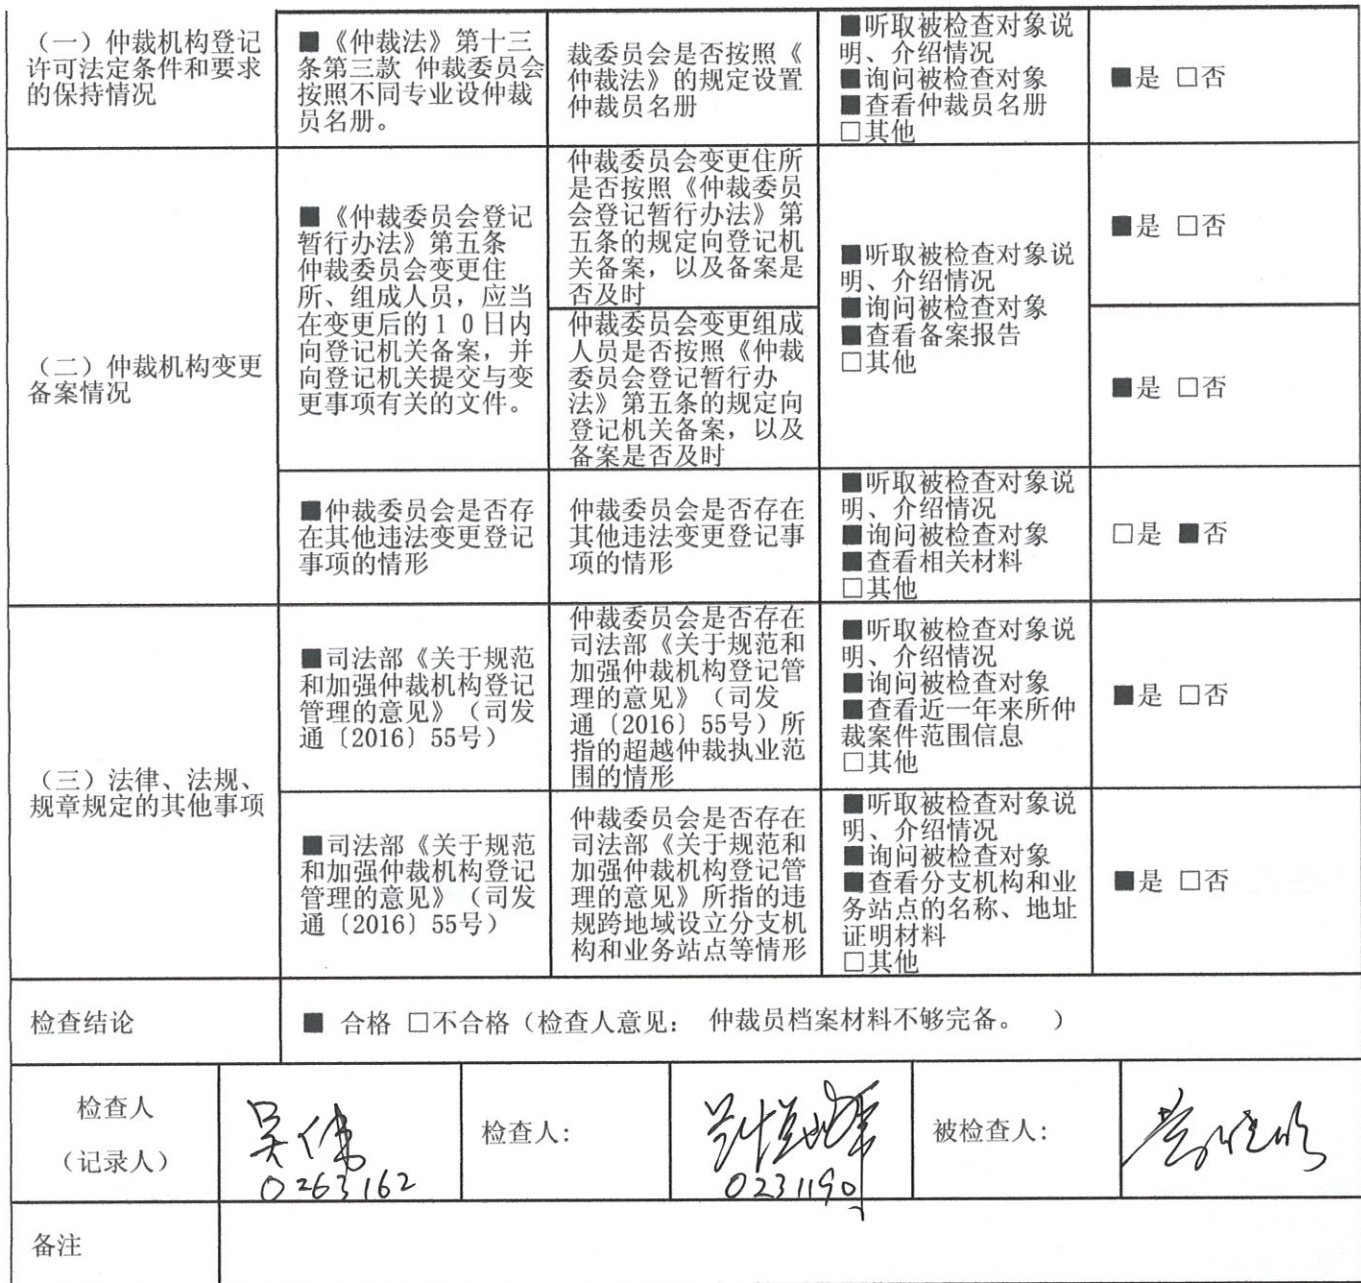 （一）仲裁机构登记
许可法定条件和要求
的保持情况
■《仲裁法》第十三
条第三款 仲裁委员会
按照不同专业设仲裁
员名册。
裁委员会是否按照《
仲裁法》的规定设置
仲裁员名册
■听取被检查对象说
明、介绍情况
■询问被检查对象
■查看仲裁员名册
□其他
■是 □否
（二）仲裁机构变更
备案情况
■《仲裁委员会登记
暂行办法》第五条
仲裁委员会变更住
所、组成人员，应当
在变更后的１０日内
向登记机关备案，并
向登记机关提交与变
更事项有关的文件。
仲裁委员会变更住所
是否按照《仲裁委员
会登记暂行办法》第
五条的规定向登记机
关备案，以及备案是
否及时
■听取被检查对象说
明、介绍情况
■询问被检查对象
■查看备案报告
□其他
■是 □否
仲裁委员会变更组成
人员是否按照《仲裁
委员会登记暂行办
法》第五条的规定向
登记机关备案，以及
备案是否及时
■是 □否
■仲裁委员会是否存
在其他违法变更登记
事项的情形
仲裁委员会是否存在
其他违法变更登记事
项的情形
■听取被检查对象说
明、介绍情况
■询问被检查对象
■查看相关材料
□其他
□是 ■否
（三）法律、法规、
规章规定的其他事项
■司法部《关于规范
和加强仲裁机构登记
管理的意见》（司发
通〔2016〕55号）
仲裁委员会是否存在
司法部《关于规范和
加强仲裁机构登记管
理的意见》（司发
通〔2016〕55号）所
指的超越仲裁执业范
围的情形
■听取被检查对象说
明、介绍情况
■询问被检查对象
■查看近一年来所仲
裁案件范围信息
□其他
■是 □否
■司法部《关于规范
和加强仲裁机构登记
管理的意见》（司发
通〔2016〕55号）
仲裁委员会是否存在
司法部《关于规范和
加强仲裁机构登记管
理的意见》所指的违
规跨地域设立分支机
构和业务站点等情形
■听取被检查对象说
明、介绍情况
■询问被检查对象
■查看分支机构和业
务站点的名称、地址
证明材料
□其他
■是 □否
检查结论
■ 合格 □不合格（检查人意见： 仲裁员档案材料不够完备。 ）
检查人
（记录人）
吴伟
0263162
检查人：
0231190
被检查人：
备注